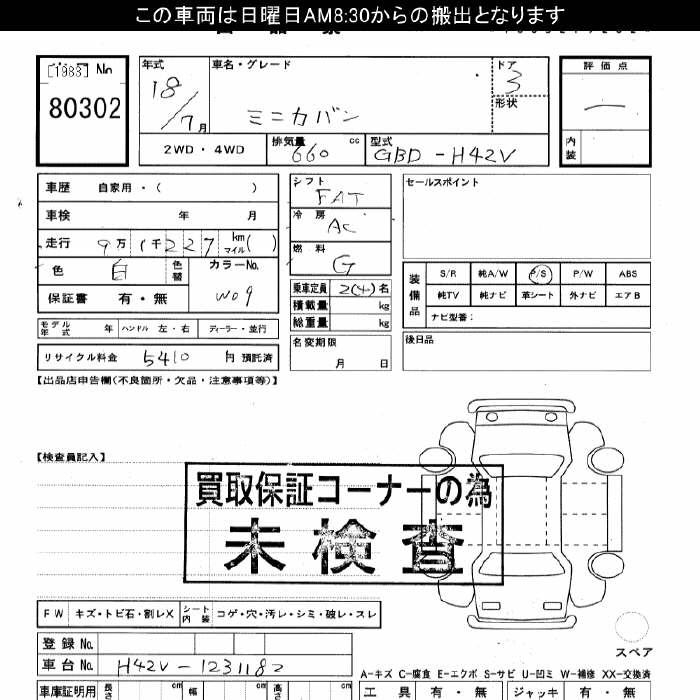 この車両は日曜日AM8:30からの搬出となります
[1983] No
80302
年式
18/7月
車名・グレード
ミニカバン
ドア
3
形状
評価点
一
内装
2WD・4WD
排気量
660 cc
型式
GBD-H42V
車歴 自家用・( )
車検 年 月
走行 9万1千227 km マイル( )
色 白 色替 カラーNo. W09
保証書 有・無
モデル年式 年 ハンドル 左・右 ディーラー・並行
リサイクル料金 5410 円 預託済
シフト FAT
冷房 AC
燃料 G
乗車定員 2(4)名
積載量 kg
総重量 kg
名変期限
月 日
セールスポイント
装備品
S/R 純A/W P/S P/W ABS
純TV 純ナビ 革シート 外ナビ エアB
ナビ型番:
後日品
【出品店申告欄(不良箇所・欠品・注意事項等)】
【検査員記入】
買取保証コーナーの為
未検査
FW キズ・トビ石・割レX シート内装 コゲ・穴・汚レ・シミ・破レ・スレ
登録No.
車台No. H42V-1231182
スペア
A-キズ C-腐食 E-エクボ S-サビ U-凹ミ W-補修 XX-交換済
車庫証明用 長さ cm 幅 cm 高さ cm
工具 有・無 ジャッキ 有・無